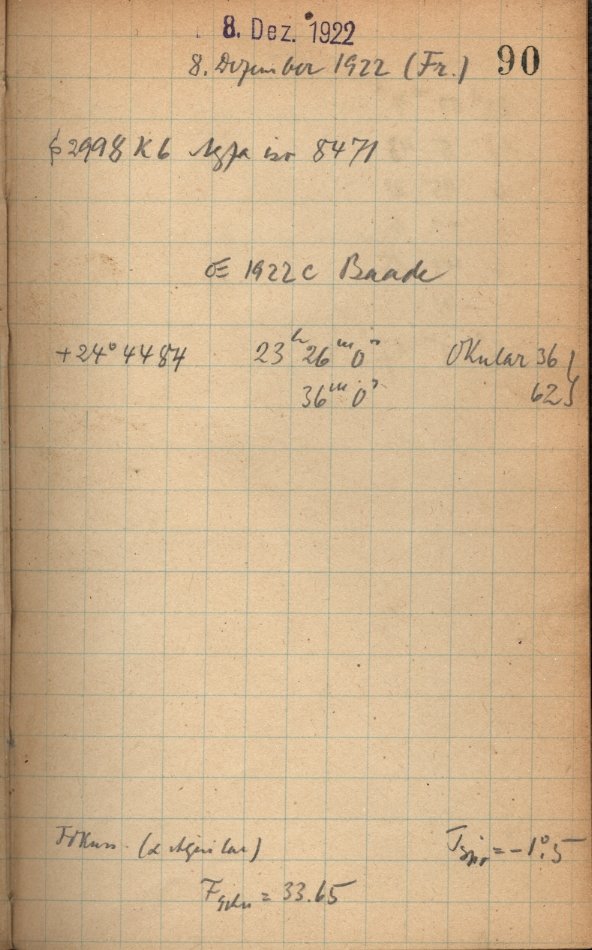 8. Dez. 1922
8. Dezember 1922 (Fr.)
90
2998 Kb Agfa iso 8471
1922 c Baade
+24° 4484 23h 26m 0s Okular 36
36m 0s 62
Fokus (α Aquilae)
F = 33.65
T = -1°.5